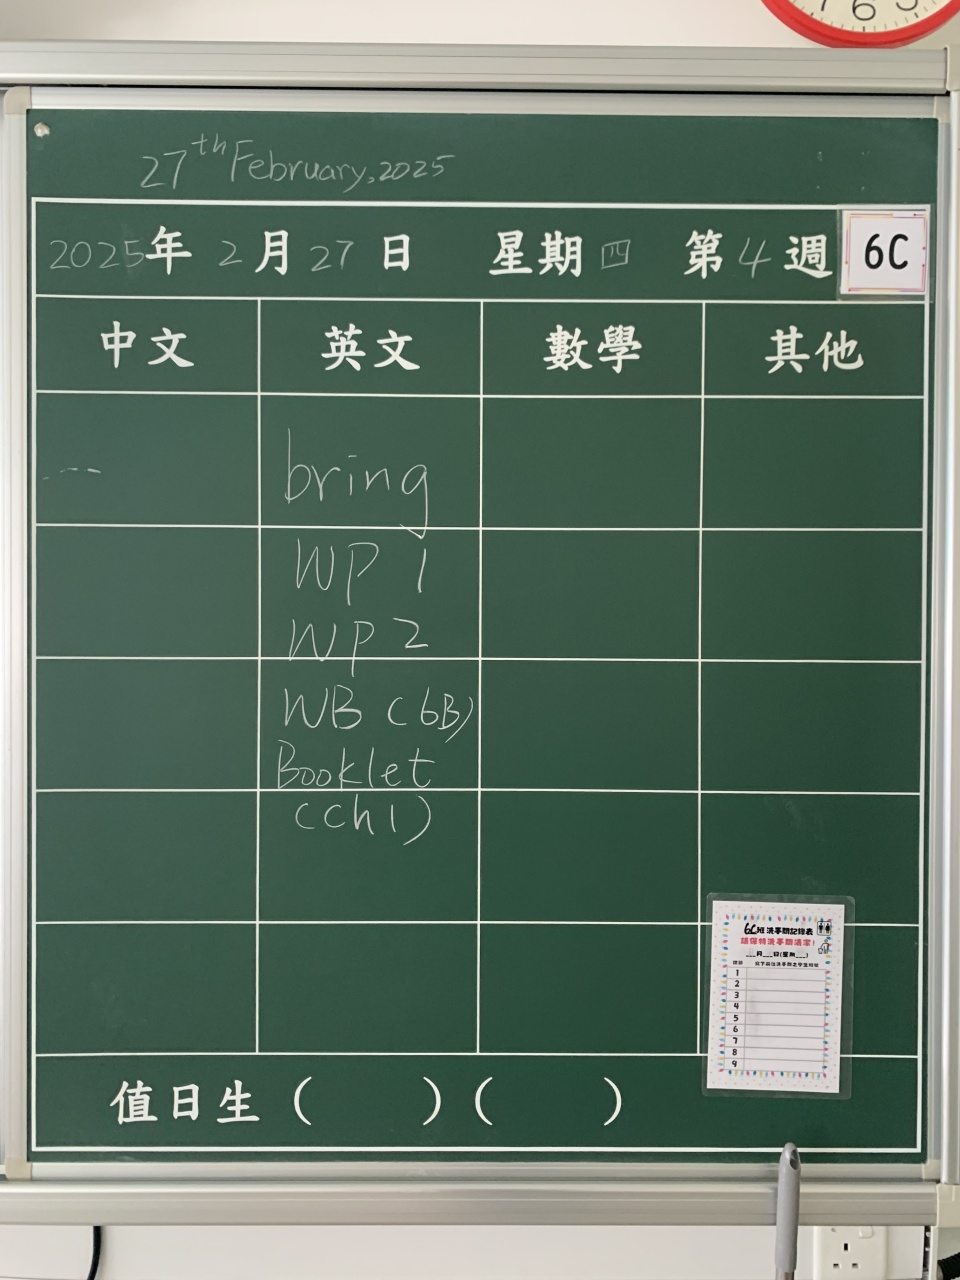 7 6 5
27th February, 2025
2025年 2月 27日 星期四 第4週 6C
中文 英文 數學 其他
bring
WP 1
WP 2
WB (6B)
Booklet
(ch 1)
6C班洗手間記錄表
請保持洗手間清潔!
___月___日(星期___)
1
2
3
4
5
6
7
8
9
值日生 ( ) ( )